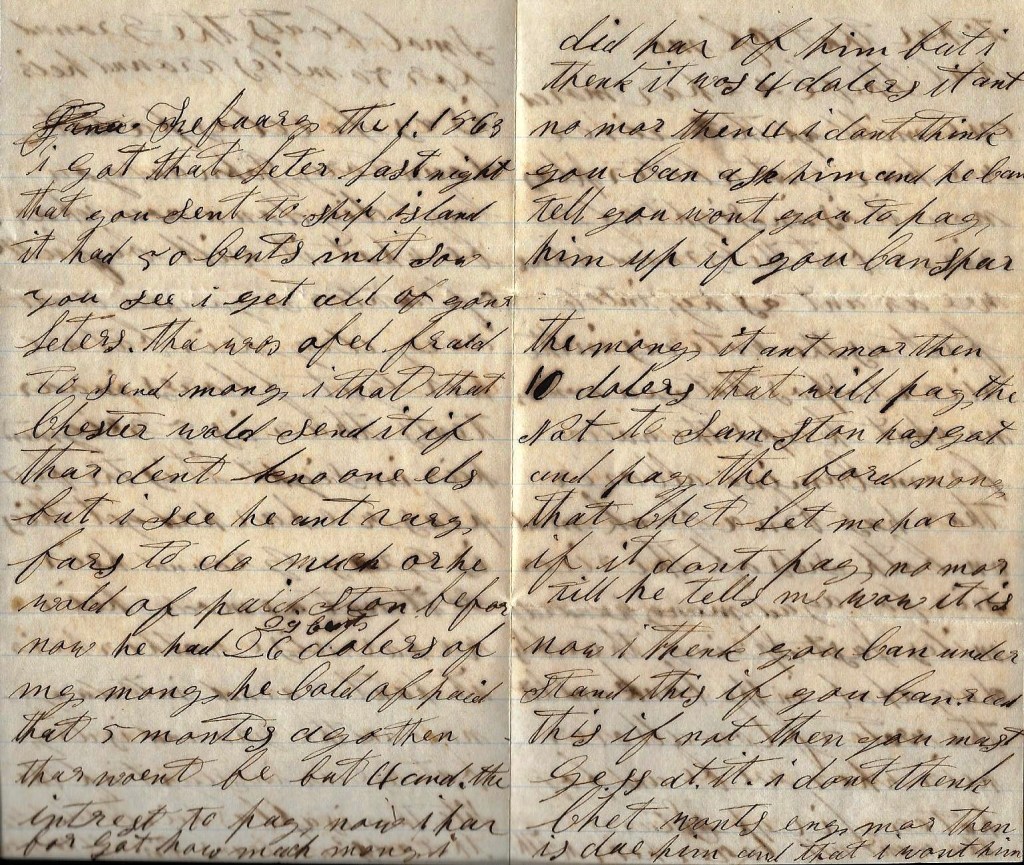 the 1. 1863
i got that leter last night
that you sent to ship island
it had 50 cents in it sow
you see i get all of your
leters. tha was ofel fraid
to send mony i that that
Chester wold send it if
thar dent kno one els
but i see he ant
fars to do much or he
wold of paid. Ston befor
29 cents
now he had 26 dolers of
my mony he cold of paid
that 5 montes ago then
thar woent be but 4 and. the
intrest to pay now i har
for got how much mony i
did har of him but i
thenk it was 4 dolers it ant
no mor then 4 i dont think
you can ask him and he can
tell you wont you to pay
him up if you can spar
the mony it ant mor then
10 dolers that will pay the
Not to Sam Ston has got
and pay the bord mony
that Chet let me har
if it dont pay no mor
till he tells me wow it is
now i thenk you can under
stand this if you can read
this if not then you must
gess at. it. i dont thenk
Chet wonts eny mor then
is due him and that i wont him